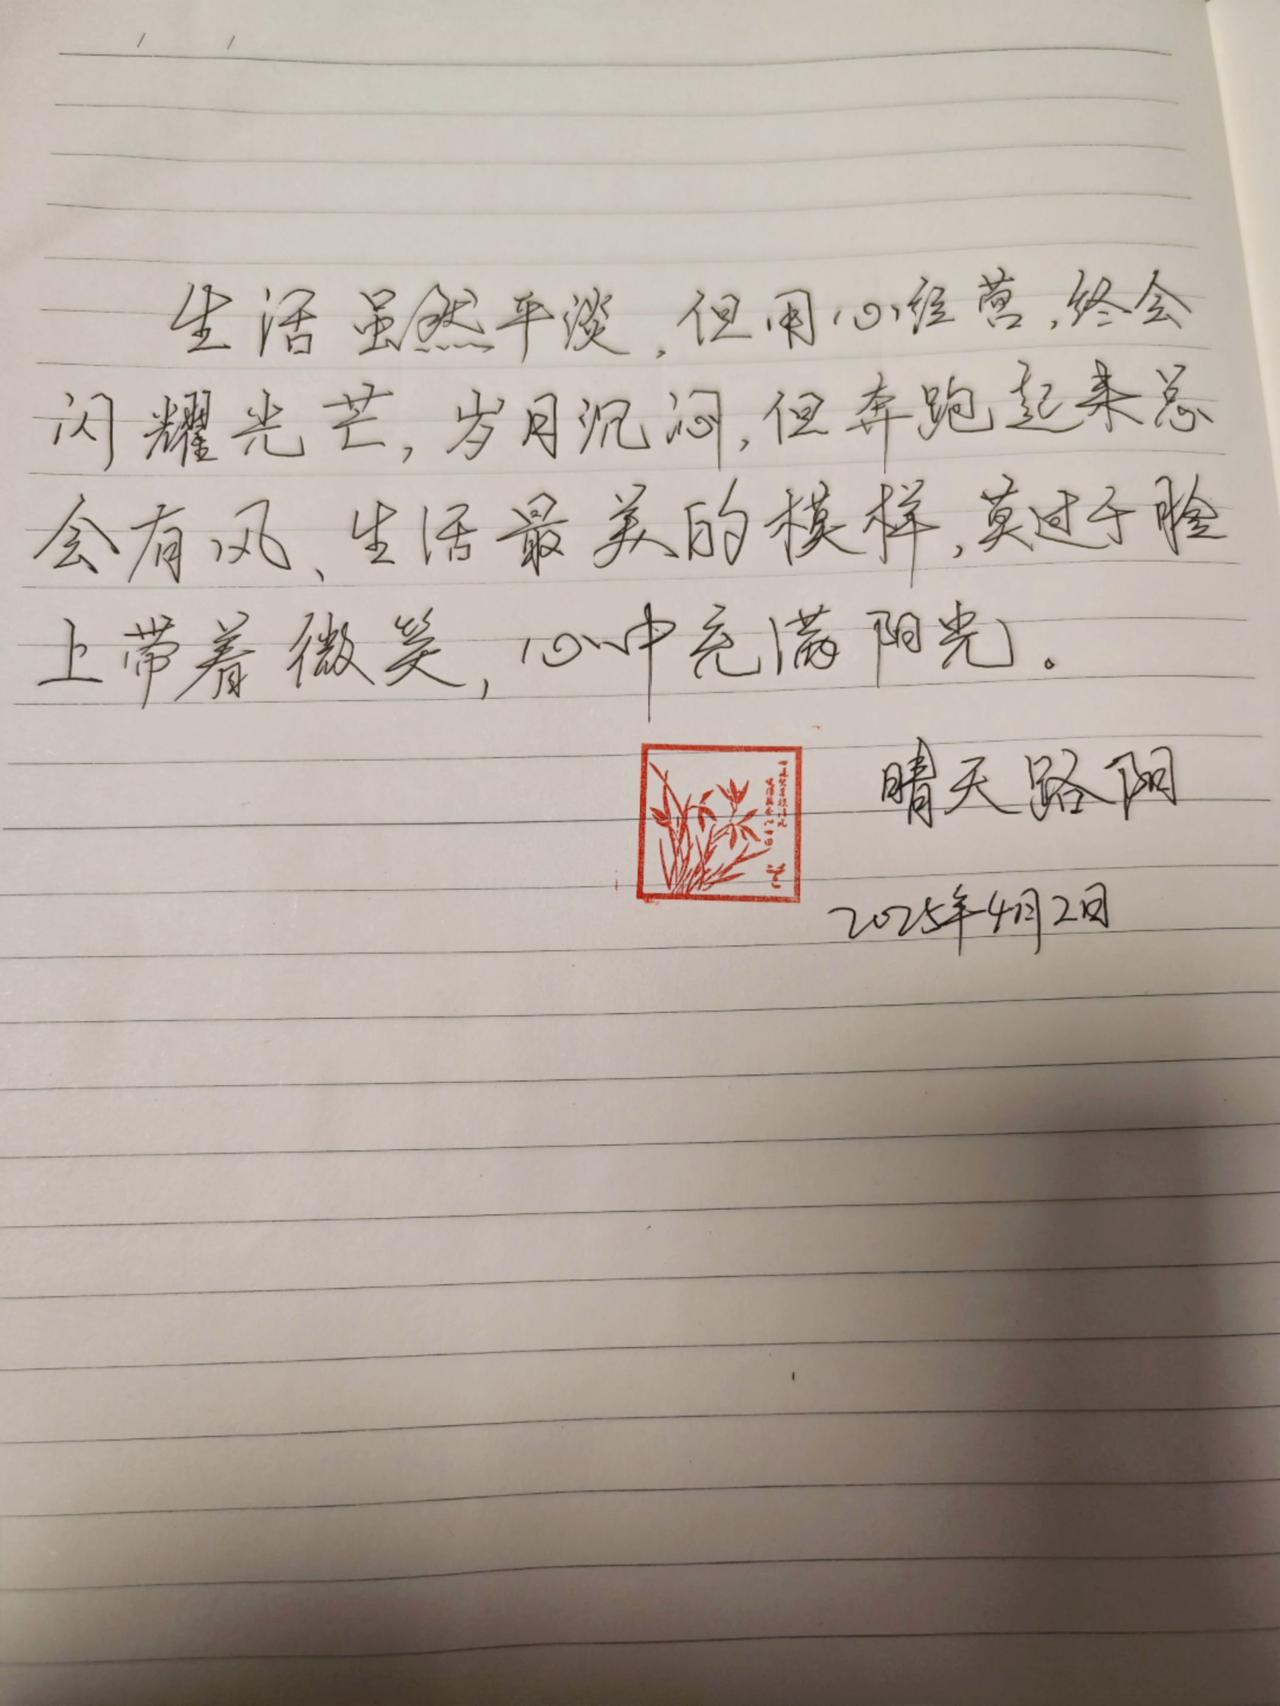 生活虽然平淡，但用心经营，终会
闪耀光芒，岁月沉闷，但奔跑起来总
会有风、生活最美的模样，莫过于脸
上带着微笑，心中充满阳光。
晴天路阳
2025年4月2日